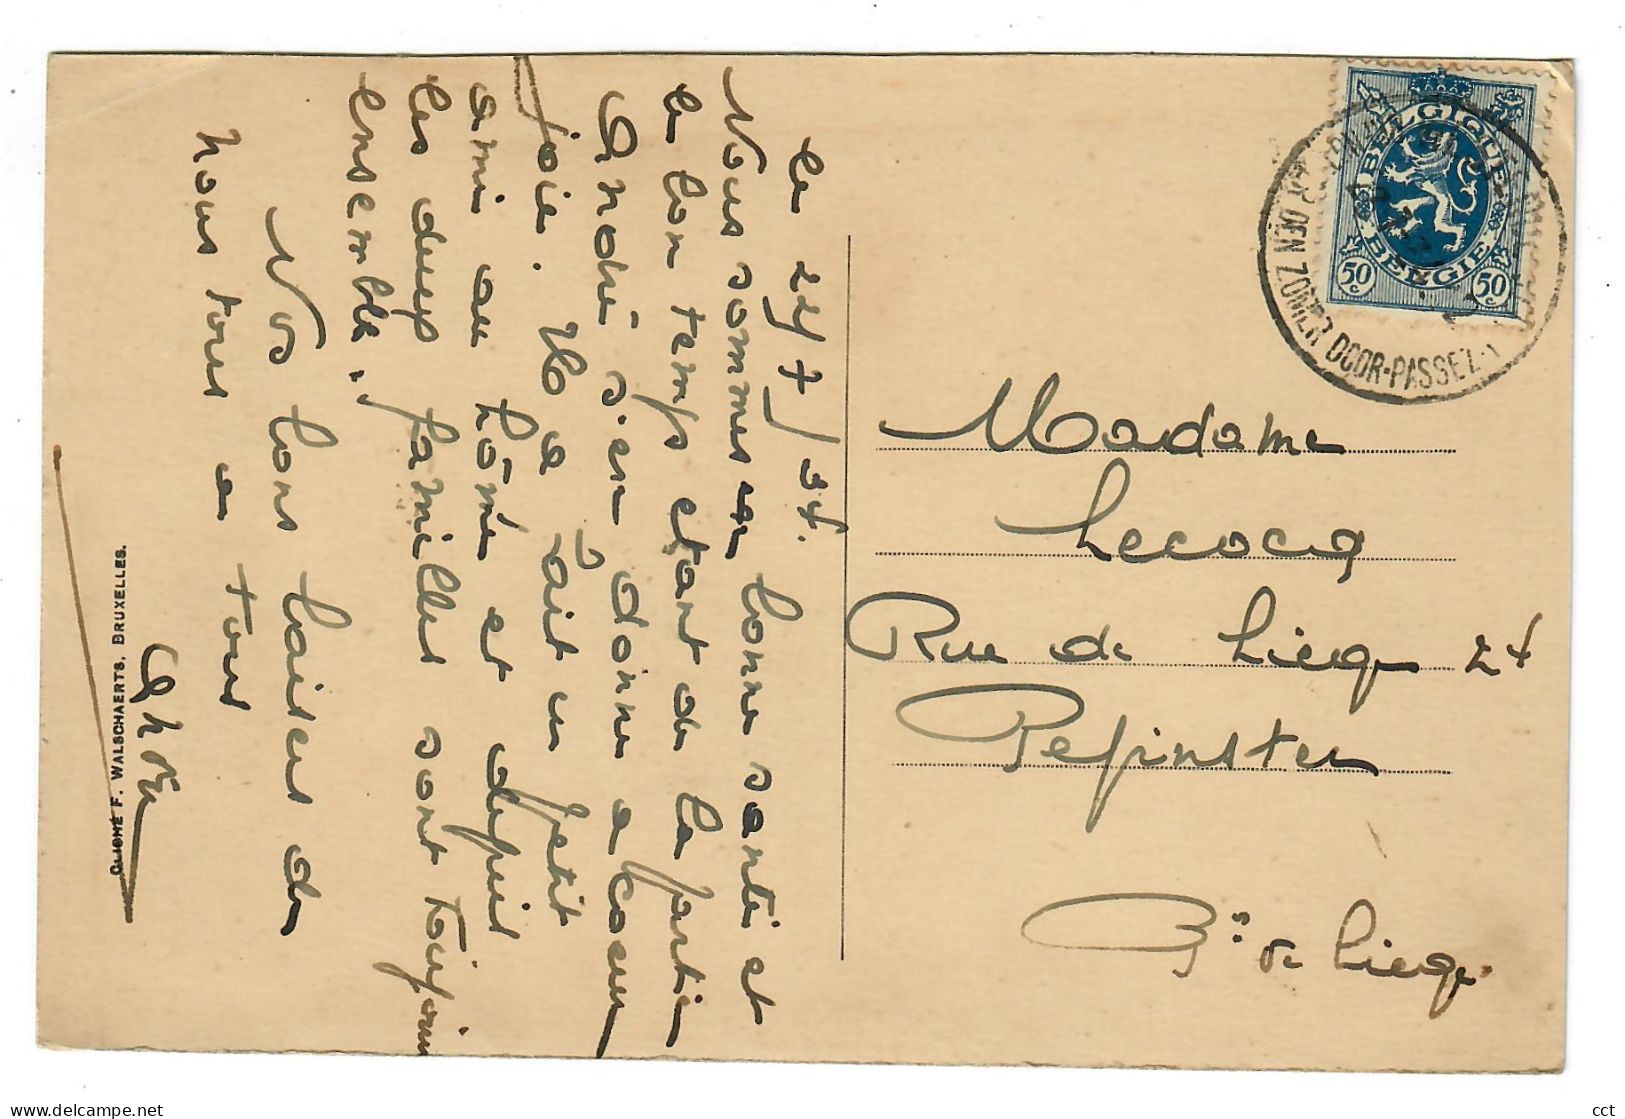 le 24/7/34.
Nous sommes en bonne santé et
le bon temps étant de la partie
André s'en donne a coeur
joie. Il a fait un petit
ami au home et depuis
les deux familles sont toujours
ensemble.
Nos bons baisers de
nous tous a tous
André
CLICHÉ F. WALSCHAERTS, BRUXELLES.
BELGIQUE
BELGIË
50 c
50 c
DEN ZOMER DOOR-PASSEZ
Madame
Lecocq
Rue de Liège 24
Pepinster
Pce de Liège